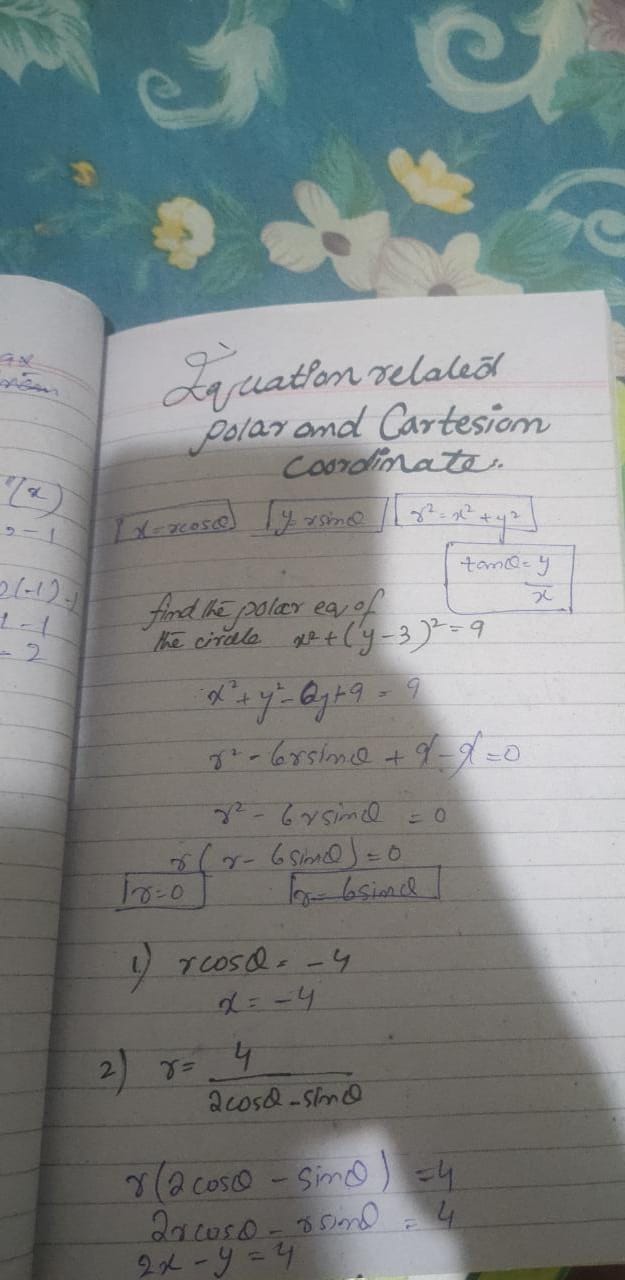 Equation related
polar and Cartesian
Coordinate.
x=rcosθ y=rsinθ r²=x²+y²
tanθ=y/x
find the polar eq of
the circle x²+(y-3)²=9
x²+y²-6y+9=9
r²-6rsinθ+9-9=0
r²-6rsinθ=0
r(r-6sinθ)=0
r=0 r=6sinθ
1) rcosθ=-4
x=-4
2) r=4/(2cosθ-sinθ)
r(2cosθ-sinθ)=4
2rcosθ-rsinθ=4
2x-y=4